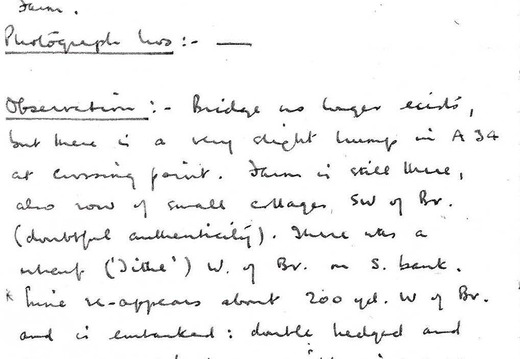 Farm.
Photograph Nos :- —
Observation :- Bridge no longer exists,
but there is a very slight hump in A 34
at crossing point. Farm is still there,
also row of small cottages SW of Br.
(doubtful authenticity). There was a
wharf ('Tithe') W. of Br. on S. bank.
* Line re-appears about 200 yd. W of Br.
and is embanked : double hedged and